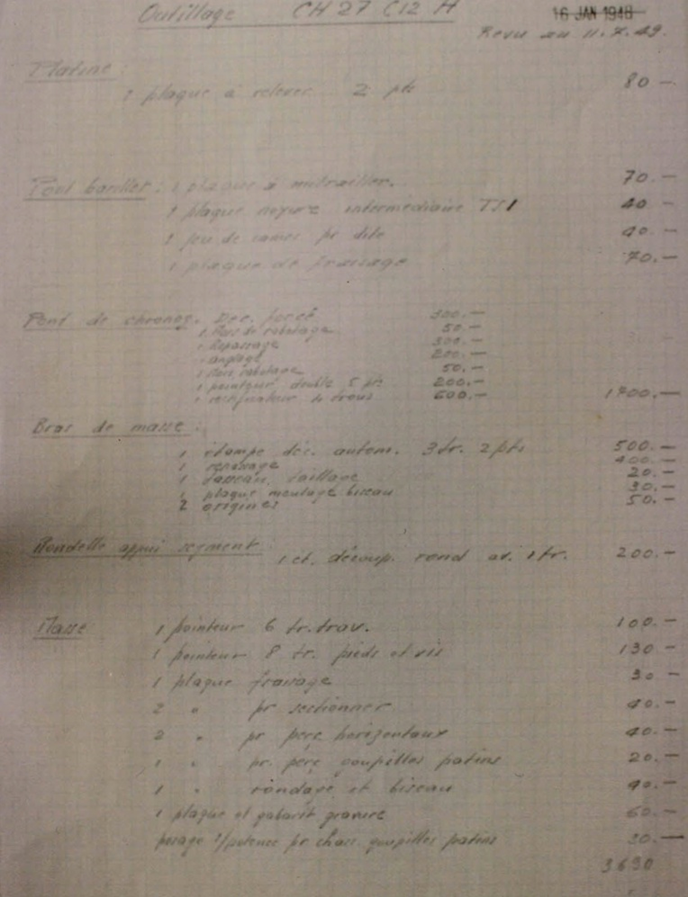 Outillage CH 27 C12 A
16 JAN 1948
Revu au 11.7.49.
Platine :
1 plaque à relever 2 pts 80 —
Pont barillet : 1 plaque à mitrailler. 70. —
1 plaque noyure intermédiaire TS1 40 —
1 jeu de cames pr dito 40. —
1 plaque de fraisage 70. —
Pont de chronog. Déc. forcé 300. —
1 Posi de rabotage 50. —
1 Repassage 300. —
200. —
1 Posi rabotage 50. —
1 pointeur double 5 pts 200. —
1 rectificateur trous 600. — 1700. —
Bras de masse :
1 étampe déc. autom. 3 tr. 2 pts 500. —
1 repassage 400. —
1 taillage 20. —
1 plaque meulage biseau 30. —
2 origines 50. —
Rondelle appui segment :
1 et. découp. rond av. 1 tr. 200. —
Masse
1 pointeur 6 tr. trav. 100. —
1 pointeur 8 tr. pieds et vis 130 —
1 plaque fraisage 30 —
2 " pr sectionner 40. —
2 " pr perç horizontaux 40. —
1 " pr. perç goupilles patins 20. —
1 " rondage et biseau 40. —
1 plaque et gabarit gravure 60. —
posage s/potence pr chass. goupilles patins 30. —
3690